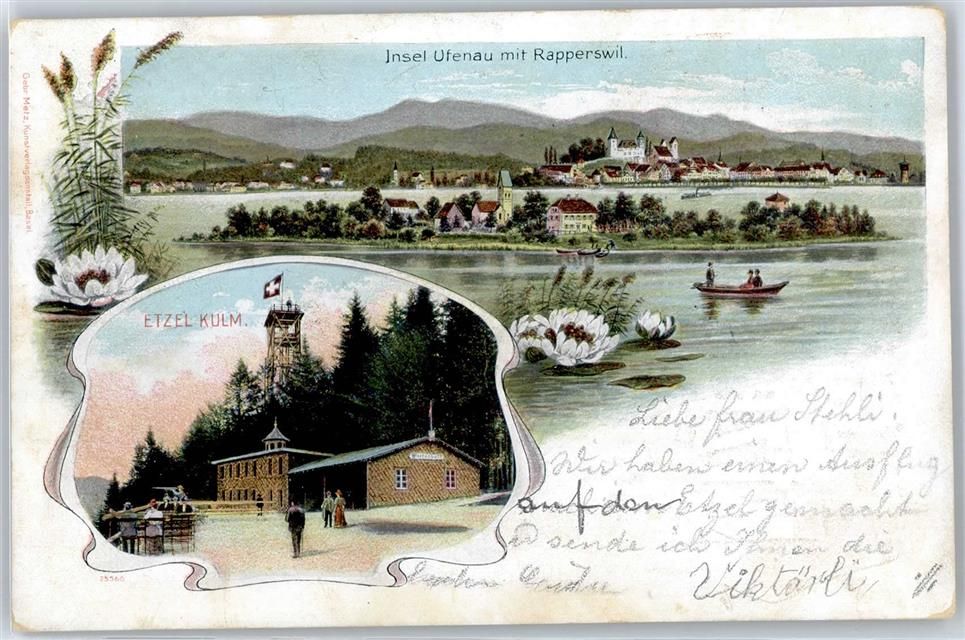 Insel Ufenau mit Rapperswil.
Gebr. Metz, Kunstverlagsanstalt, Basel.
ETZEL KULM.
Wirtschaft
25560
Liebe frau Stehli.
Wir haben einen Ausflug
auf den Etzel gemacht
sende ich Ihnen die
Viktörli